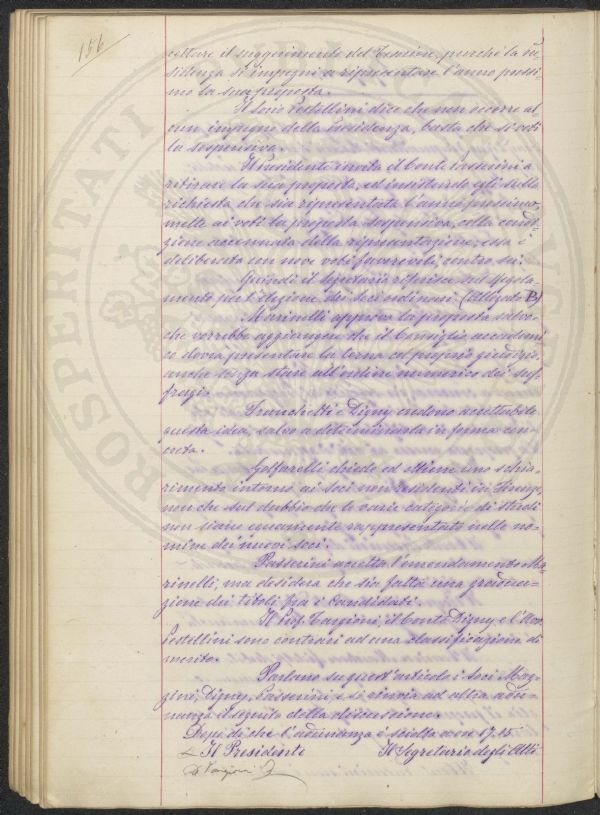 156
cettare il suggerimento del Tesoriere, purchè la Pre
sidenza si impegni a ripresentare l'anno prossi
mo la sua proposta.
Il Socio Pestellini dice che non occorre al-
cun impegno della Presidenza, basta che si voti
la sospensiva.
Il Presidente invita il Conte Passerini a
ritirare la sua proposta, ed insistendo egli sulla
richiesta che sia ripresentata l'anno prossimo,
mette ai voti la proposta sospensiva, colla condi-
zione accennata della ripresentazione, essa è
deliberata con nove voti favorevoli, contro sei.
Quindi il Segretario riferisce sul regola-
mento per l'elezione dei Soci ordinari (Allegato B)
Marinelli approva la proposta salvo-
che vorrebbe aggiungere che il Consiglio accademi-
co dovrà presentare la terna col proprio giudizio,
anche senza stare all'ordine numerico dei suf
fragi.
Franchetti e Digny credono accettabile
questa idea, salvo a determinarla in forma con-
creta.
Golfarelli chiede ed ottiene uno schia-
rimento intorno ai Soci non residenti in Firenze,
non che sul dubbio che le varie categorie di studi
non siano equamente rappresentate nelle no-
mine dei nuovi soci.
Passerini accetta l'emendamento Ma-
rinelli, ma desidera che sia fatta una gradua-
zione dei titoli fra i Candidati.
Il Prof. Targioni, il Conte Digny e l'Avv.
Pestellini sono contrari ad una classificazione di
merito.
Parlano su quest'articolo i Soci
zini, Digny, Passerini, e si rinvia ad altra adu-
nanza il seguito della discussione.
Dopo di che l'adunanza è sciolta a ore 17,15.
Il Presidente Il Segretario degli Atti
Targioni
PROSPERITATI